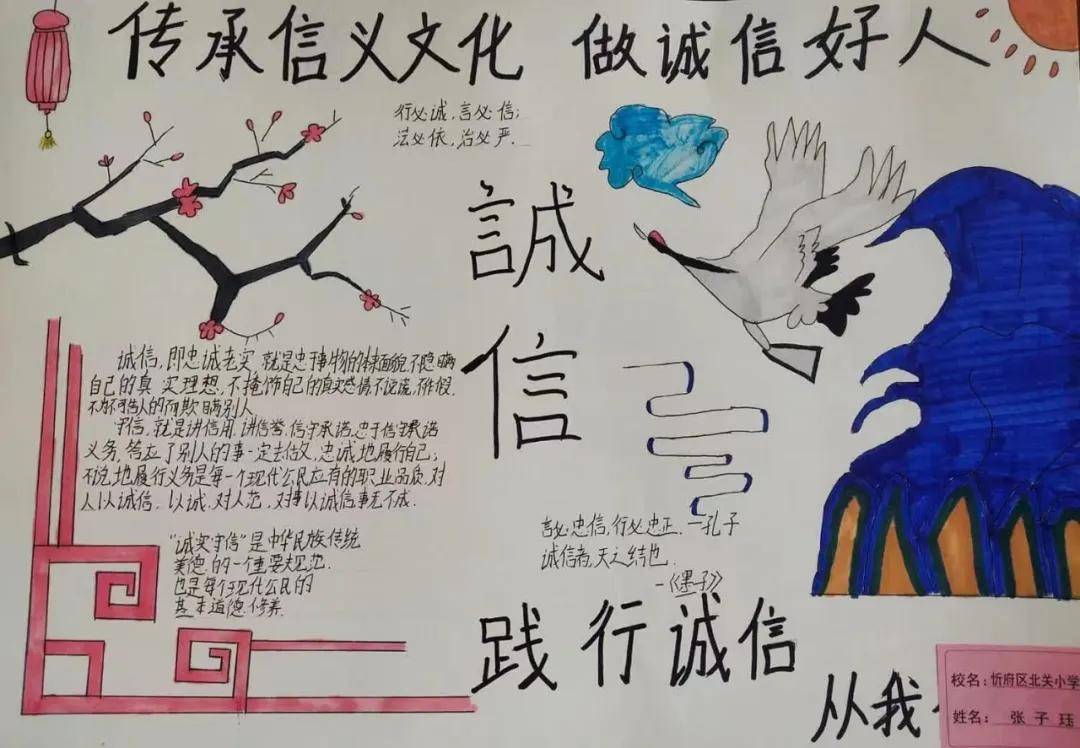 传承信义文化 做诚信好人
行必诚，言必信；
法必依，治必严．
誠
信
诚信，即忠诚老实，就是忠于事物的本来面貌，不隐瞒
自己的真实理想，不掩饰自己的真实感情，不说谎，不作假，
不为不可告人的而欺瞒别人
守信，就是讲信用，讲信誉，信守承诺，忠于信守承诺
义务，答应了别人的事一定去做
忠诚地履行自己
地履行义务是每一个现代公民应有的职业品质．对
人以诚信，
以诚
对人
对事以诚信事无不成．
“诚实守信”是中华民族传统
美德的一个重要规范．
也是每个现代公民的
基本道德修养．
言必忠信，行必忠正．—孔子
诚信者，天之结也
—《墨子》
践行诚信
从我
校名：忻府区北关小学
姓名： 张子珏